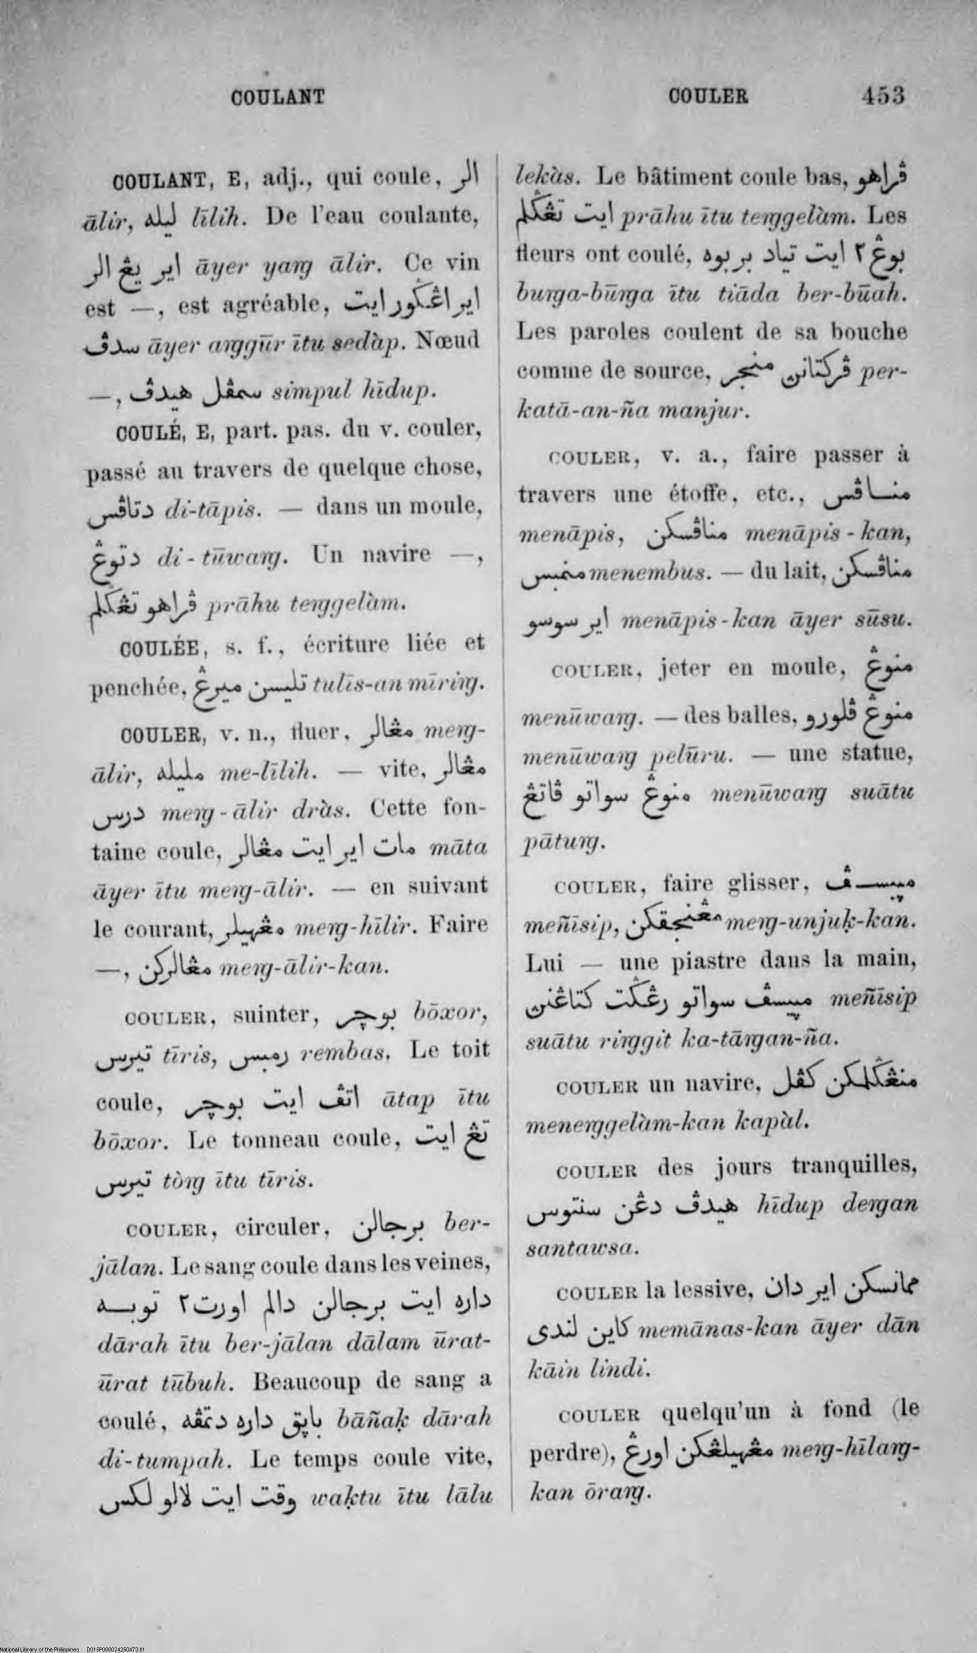 COULANT
COULER 453
COULANT, E, adj., qui coule, الر
ālir, ليله līlih. De l'eau coulante,
اير يڠ الر āyer yaŋg ālir. Ce vin
est —, est agréable, اير اڠݢور ايت
سدڤ āyer aŋggūr ītu sedàp. Nœud
—, سمڤل هيدڤ simpul hīdup.
COULÉ, E, part. pas. du v. couler,
passé au travers de quelque chose,
دتاڤس di-tāpis. — dans un moule,
دتوڠ di-tūwaŋg. Un navire —,
ڤراهو تڠݢلم prāhu teŋggelàm.
COULÉE, s. f., écriture liée et
penchée, تليسن ميرڠ tulīs-an mīriŋg.
COULER, v. n., fluer, مڠالر meŋg-
ālir, مليله me-līlih. — vite, مڠالر
درس meŋg-ālir dràs. Cette fon-
taine coule, مات اير ايت مڠالر māta
āyer ītu meŋg-ālir. — en suivant
le courant, مڠهيلر meŋg-hīlir. Faire
—, مڠالركن meŋg-ālir-kan.
COULER, suinter, بوچر bōxor,
تيرس tīris, رمبس rembas. Le toit
coule, اتڤ ايت بوچر ātap ītu
bōxor. Le tonneau coule, تڠ ايت
تيرس tòŋg ītu tīris.
COULER, circuler, برجالن ber-
jālan. Le sang coule dans les veines,
داره ايت برجالن دالم اورت٢ توبه
dārah ītu ber-jālan dālam ūrat-
ūrat tūbuh. Beaucoup de sang a
coulé, باپق داره دتمڤه bāñaḳ dārah
di-tumpah. Le temps coule vite,
وقت ايت لالو لكس waḳtu ītu lālu
lekàs. Le bâtiment coule bas, ڤراهو
ايت تڠݢلم prāhu ītu teŋggelàm. Les
fleurs ont coulé, بوڠ٢ ايت تياد بربوه
buŋga-būŋga ītu tiāda ber-būah.
Les paroles coulent de sa bouche
comme de source, ڤركتانن منجر per-
katā-an-ña manjur.
COULER, v. a., faire passer à
travers une étoffe, etc., مناڤس
menāpis, مناڤسكن menāpis-kan,
منمبس menembus. — du lait, مناڤسكن
اير سوسو menāpis-kan āyer sūsu.
COULER, jeter en moule, منوڠ
menūwaŋg. — des balles, منوڠ ڤلورو
menūwaŋg pelūru. — une statue,
منوڠ سواتو ڤاتڠ menūwaŋg suātu
pātuŋg.
COULER, faire glisser, مپيسڤ
meñīsip, مڠنجقكن meŋg-unjuḳ-kan.
Lui — une piastre dans la main,
مپيسڤ سواتو رڠݢت كتاڠنن meñīsip
suātu riŋggit ka-tāŋgan-ña.
COULER un navire, منڠݢلمكن كڤل
meneŋggelàm-kan kapàl.
COULER des jours tranquilles,
هيدڤ دڠن سنتوس hīdup deŋgan
santawsa.
COULER la lessive, ممانسكن اير دان
كاين لندى memānas-kan āyer dān
kāin lindi.
COULER quelqu'un à fond (le
perdre), مڠهيلڠكن اورڠ meŋg-hīlaŋg-
kan ōraŋg.
National Library of the Philippines